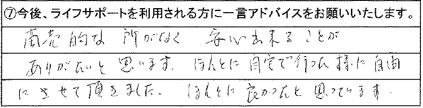 ⑦今後、ライフサポートを利用される方に一言アドバイスをお願いいたします。
商売的な所がなく 安心出来ることが
ありがたいと思います。ほんとに自宅で行った様に自由
にさせて頂きました。ほんとに良かったと思っています。